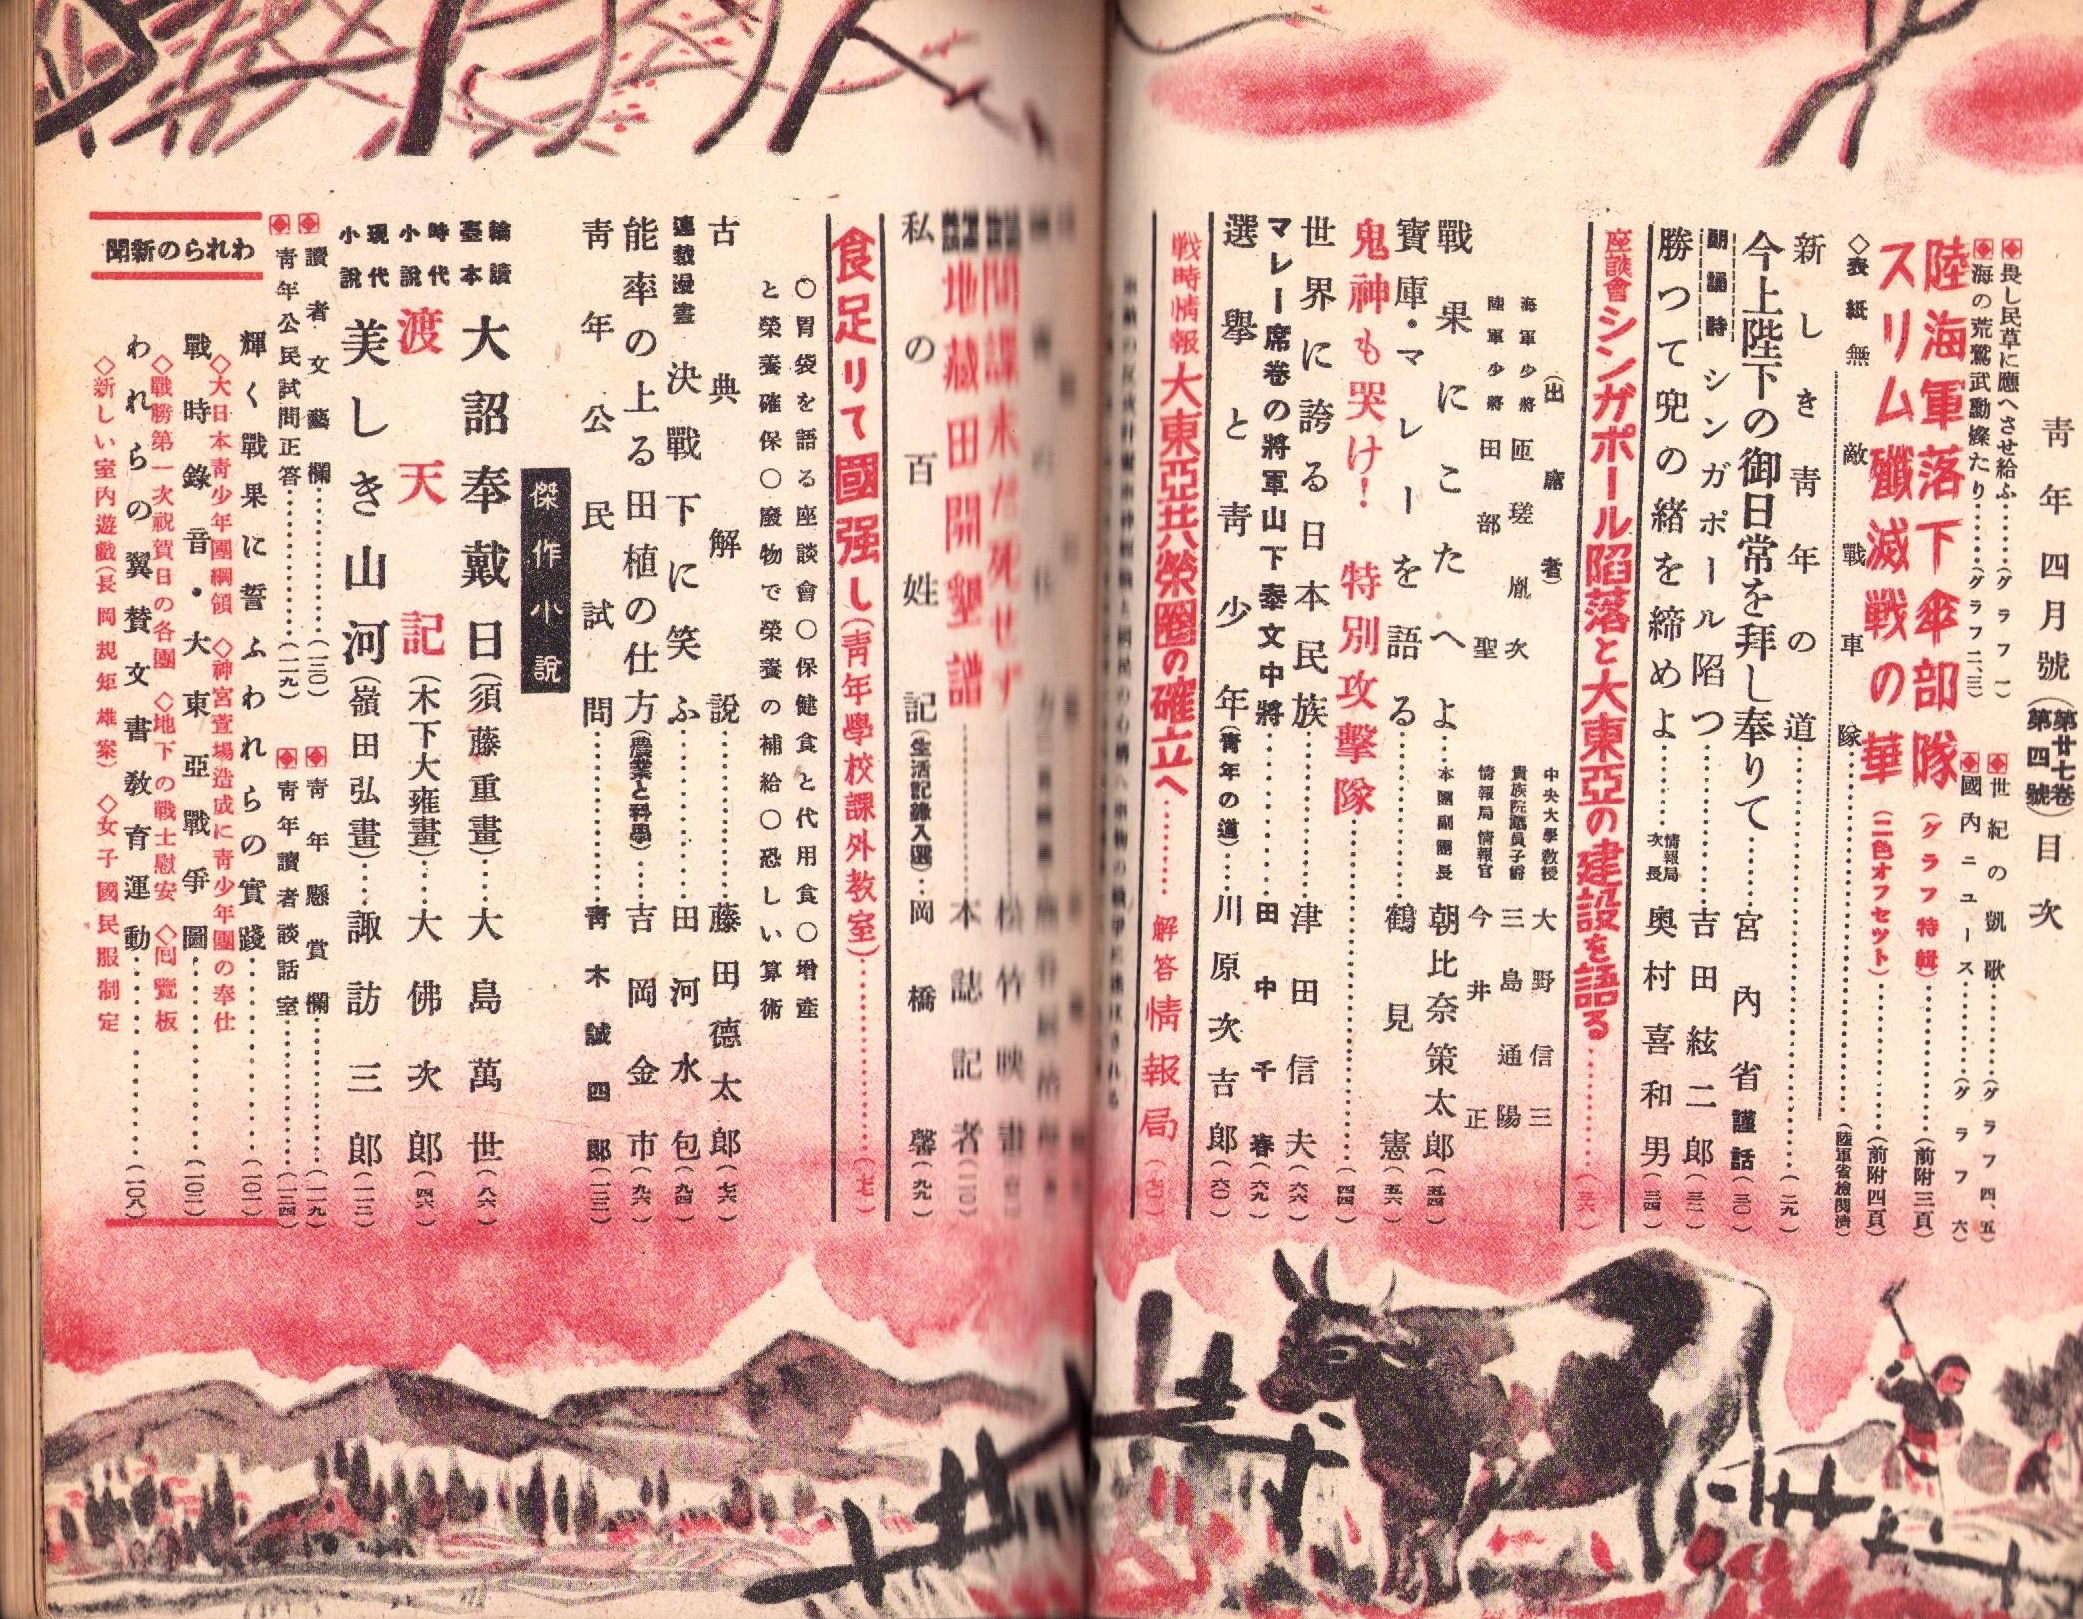 青年四月號(第廿七卷第四號)目次
畏し民草に應へさせ給ふ……(グラフ一)
海の荒鷲武勳燦たり……(グラフ二、三)
世紀の凱歌……(グラフ四、五)
國内ニュース……(グラフ六)
陸海軍落下傘部隊(グラフ特輯)……(前附三頁)
スリム殲滅戰の華(二色オフセット)……(前附四頁)
◇表紙 無敵戰車隊……(陸軍省檢閲濟)
新しき青年の道……(二九)
今上陛下の御日常を拜し奉りて……宮内省謹話(三〇)
朗誦詩 シンガポール陷つ……吉田絃二郎(三二)
勝つて兜の緒を締めよ……情報局次長 奥村喜和男(三四)
座談會 シンガポール陷落と大東亞の建設を語る……(三六)
(出席者)
海軍少將 匝瑳胤次
陸軍少將 田部聖
中央大學教授 大野信三
貴族院議員子爵 三島通陽
情報局情報官 今井正
戰果にこたへよ……本團副團長 朝比奈策太郎(五四)
寶庫・マレーを語る……鶴見憲(五六)
鬼神も哭け！特別攻擊隊……(四四)
世界に誇る日本民族……津田信夫(六六)
マレー席卷の將軍山下奉文中將……田中千春(六九)
選擧と青少年(青年の道)……川原次吉郎(六〇)
戰時情報 大東亞共榮圈の確立へ……解答 情報局
間諜未だ死せず……松竹映畫
地藏田開墾譜……本誌記者(一一〇)
私の百姓記(生活記錄入選)…岡橋馨(九九)
食足りて國强し(青年學校課外教室)……(七二)
〇胃袋を語る座談會〇保健食と代用食〇增産
と榮養確保〇廢物で榮養の補給〇恐しい算術
古典解説……藤田德太郎(七六)
連載漫畫 決戰下に笑ふ……田河水包(九四)
能率の上る田植の仕方(農業と科學)……吉岡金市(九六)
青年公民試問……青木誠四郎(一三二)
傑作小說
輪讀臺本 大詔奉戴日(須藤重畫)……大島萬世(八六)
時代小說 渡天記(木下大雍畫)……大佛次郎(四六)
現代小說 美しき山河(嶺田弘畫)……諏訪三郎(一一二)
讀者文藝欄……(一三〇)
青年公民試問正答……(一一九)
青年懸賞欄……(一一九)
青年讀者談話室……(一三四)
われらの新聞
輝く戰果に誓ふわれらの實踐……(一〇一)
◇大日本青少年團綱領 ◇神宮萱場造成に青少年團の奉仕
戰時錄音・大東亞戰爭圖……(一〇二)
◇戰勝第一次祝賀日の各團 ◇地下の戰士慰安 ◇回覽板
われらの翼贊文書教育運動……(一〇八)
◇新しい室内遊戲(長岡規矩雄案) ◇女子國民服制定